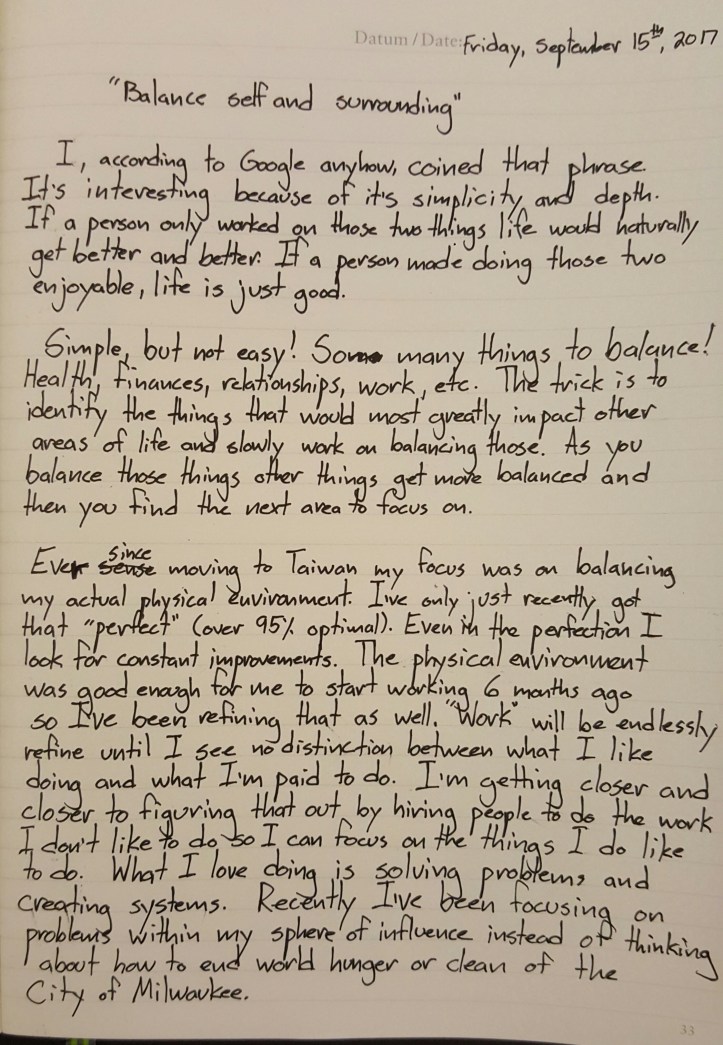 Datum / Date: Friday, September 15th, 2017
"Balance self and surrounding"
I, according to Google anyhow, coined that phrase.
It's interesting because of it's simplicity and depth.
If a person only worked on those two things life would naturally
get better and better. If a person made doing those two
enjoyable, life is just good.
Simple, but not easy! So many things to balance!
Health, finances, relationships, work, etc. The trick is to
identify the things that would most greatly impact other
areas of life and slowly work on balancing those. As you
balance those things other things get more balanced and
then you find the next area to focus on.
Ever since moving to Taiwan my focus was on balancing
my actual physical environment. I've only just recently got
that "perfect" (over 95% optimal). Even in the perfection I
look for constant improvements. The physical environment
was good enough for me to start working 6 months ago
so I've been refining that as well. "Work" will be endlessly
refine until I see no distinction between what I like
doing and what I'm paid to do. I'm getting closer and
closer to figuring that out by hiring people to do the work
I don't like to do so I can focus on the things I do like
to do. What I love doing is solving problems and
creating systems. Recently I've been focusing on
problems within my sphere of influence instead of thinking
about how to end world hunger or clean of the
City of Milwaukee.
33